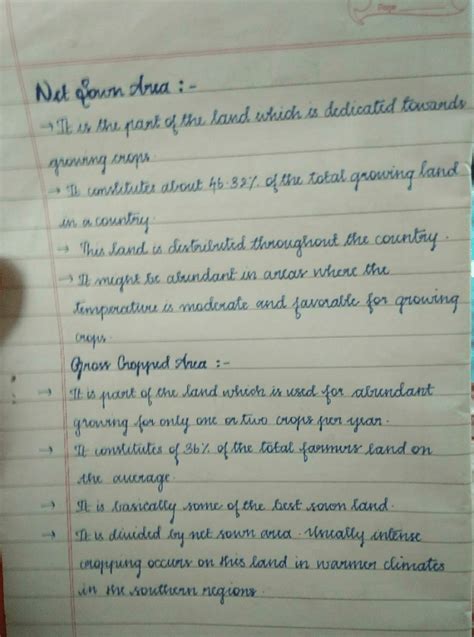 Page
Net Sown Area :-
→ It is the part of the land which is dedicated towards
growing crops.
→ It constitutes about 46.32% of the total growing land
in a country.
→ This land is distributed throughout the country.
→ It might be abundant in areas where the
temperature is moderate and favorable for growing
crops.
Gross Cropped Area :-
→ It is part of the land which is used for abundant
growing for only one or two crops per year.
→ It constitutes of 36% of the total farmers land on
the average.
→ It is basically some of the best sown land.
→ It is divided by net sown area. Usually intense
cropping occurs on this land in warmer climates
in the southern regions.